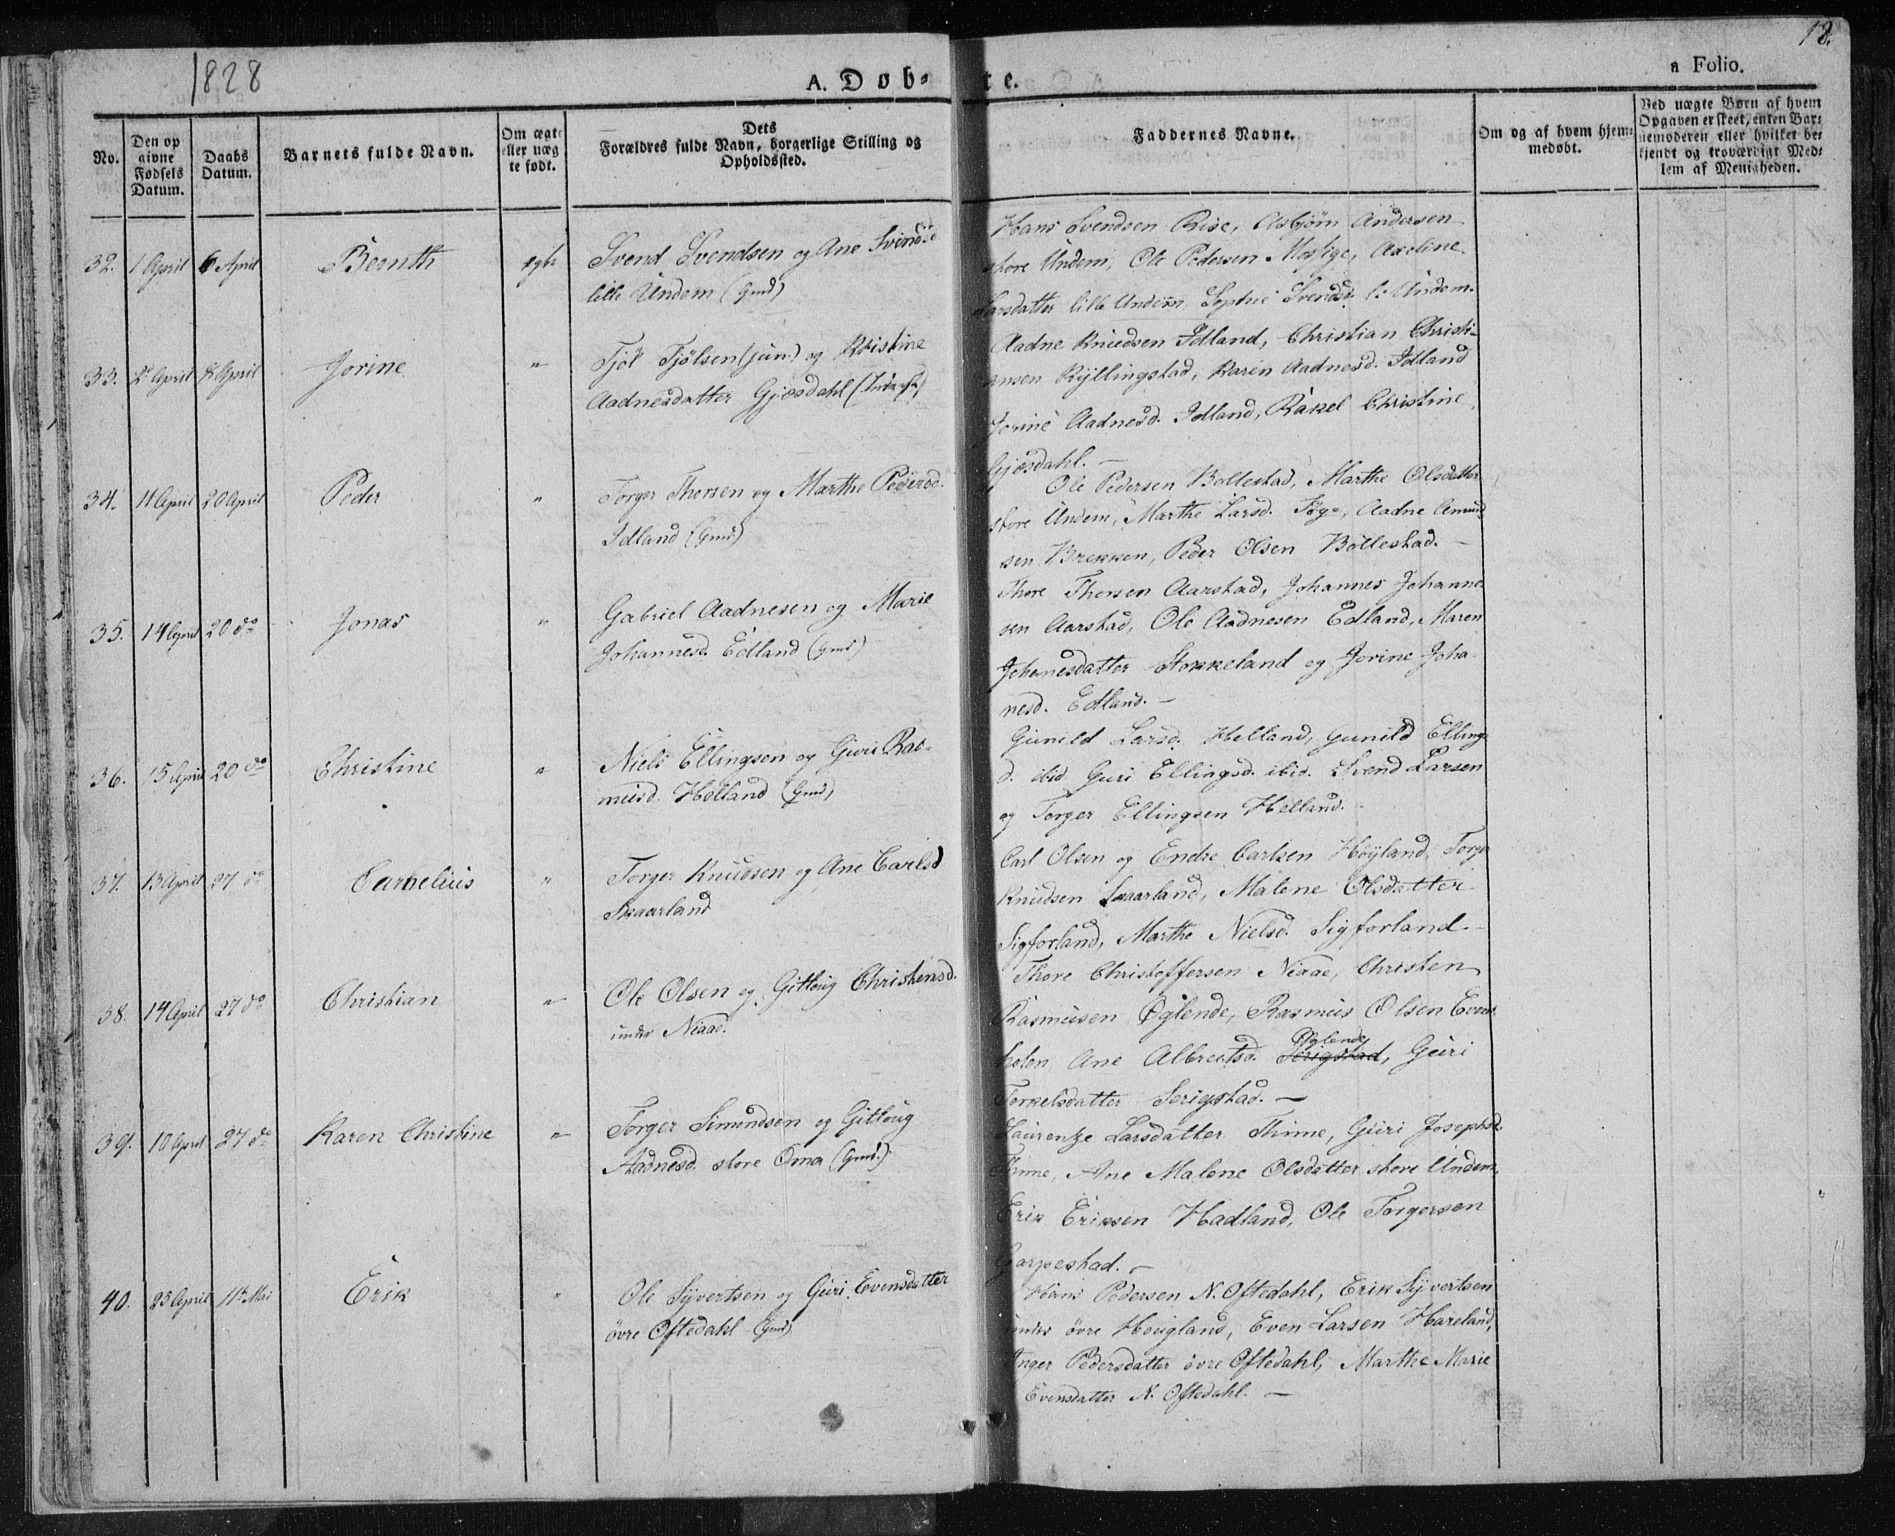 1828
A. Døb-
te.
18.
a Folio.
No.
Den op
givne
Fødsels
Datum.
Daabs
Datum.
Barnets fulde Navn.
Om ægte
eller uæg
te født.
Dets
Forældres fulde Navn, borgerlige Stilling og
Opholdssted.
Faddernes Navne.
Om og af hvem hjem-
medøbt.
Ved uægte Børn af hvem
Opgaven er skeet, enten Bar-
nemoderen eller hvilket be-
kjendt og troværdigt Med-
lem af Menigheden.
32. 1 April 6 April Bernth Svend Svendsen og Ane
lille Undem (Gmd)
Hans Svendsen Rise, Asbjørn Andersen
store Undem, Ole Pedersen Mosige, Axeline
Larsdatter lille Undem, Sophie Svendsd. l: Undem.
33. April April Jorine " Tjøl Tjølsen (jun.) og Kristine
Aadnesdatter Gjøsdahl
Aadne Knudsen Idland, Christian Christi-
ansen Ryllingstad, Karen Aadnesd. Idland
Jorine Aadnesd. Idland, Rakel Christine
Gjøsdahl. —
34. 11 April 20 April Peder " Torger Thorsen og Marthe Pedersd.
Idland (Gmd)
Ole Pedersen Bollestad, Marthe Olsdatter
store Undem, Marthe Larsd. Aadne Amund
sen Brekken, Peder Olsen Bollestad. —
35. 14 April 20 do Jonas " Gabriel Aadnesen og Marie
Johannesd. Edland (Gmd)
Thore Thorsen Aarstad, Johannes Johanne
sen Aarstad, Ole Aadnesen Edland, Maren
Johanesdatter Stokkeland og Jorine Joha
nesd. Edland. —
36. 15 April 20 do Christine " Niels Ellingsen og Guri Ras-
musd. Helland (Gmd)
Gunild Larsd. Helland, Gunild Ellings
d. ibid Guri Ellingsd. ibid. Svend Larsen
og Torger Ellingsen Helland.
37. 13 April 27 do Carnelius " Torger Knudsen og Ane Carlsd
Skaarland
Carl Olsen og Endre Carlsen Høyland, Torger
Knudsen Skaarland, Malene Olsdatter
Sigforland, Marthe Nielsd. Sigforland. —
38. 14 April 27 do Christian " Ole Olsen og Gitloug Christensd.
under Niaae.
Thore Christoffersen Niaae, Christen
Rasmusen Øglende, Rasmus Olsen Even
Øglende
holen, Ane Albretsd. Serigstad, Guri
Torkelsdatter Serigstad. —
39. 10 April 27 do Karen Christine " Torger Simondsen og Gitloug
Aadnesd. store Oma (Gmd.)
Laurentze Larsdatter Thime, Guri Josephsd
Thime, Ane Malene Olsdatter store Undem,
Erik Eriksen Hadland, Ole Torgersen
Garpestad. —
40. 23 April 11te Mai Erik " Ole Syvertsen og Guri Evensdatter
øvre Oftedahl (Gmd)
Hans Pedersen N. Oftedahl, Erik Syvertsen
under øvre Hougland, Even Larsen Hareland,
Inger Pedersdatter øvre Oftedahl, Marthe Marie
Evensdatter N. Oftedahl. —